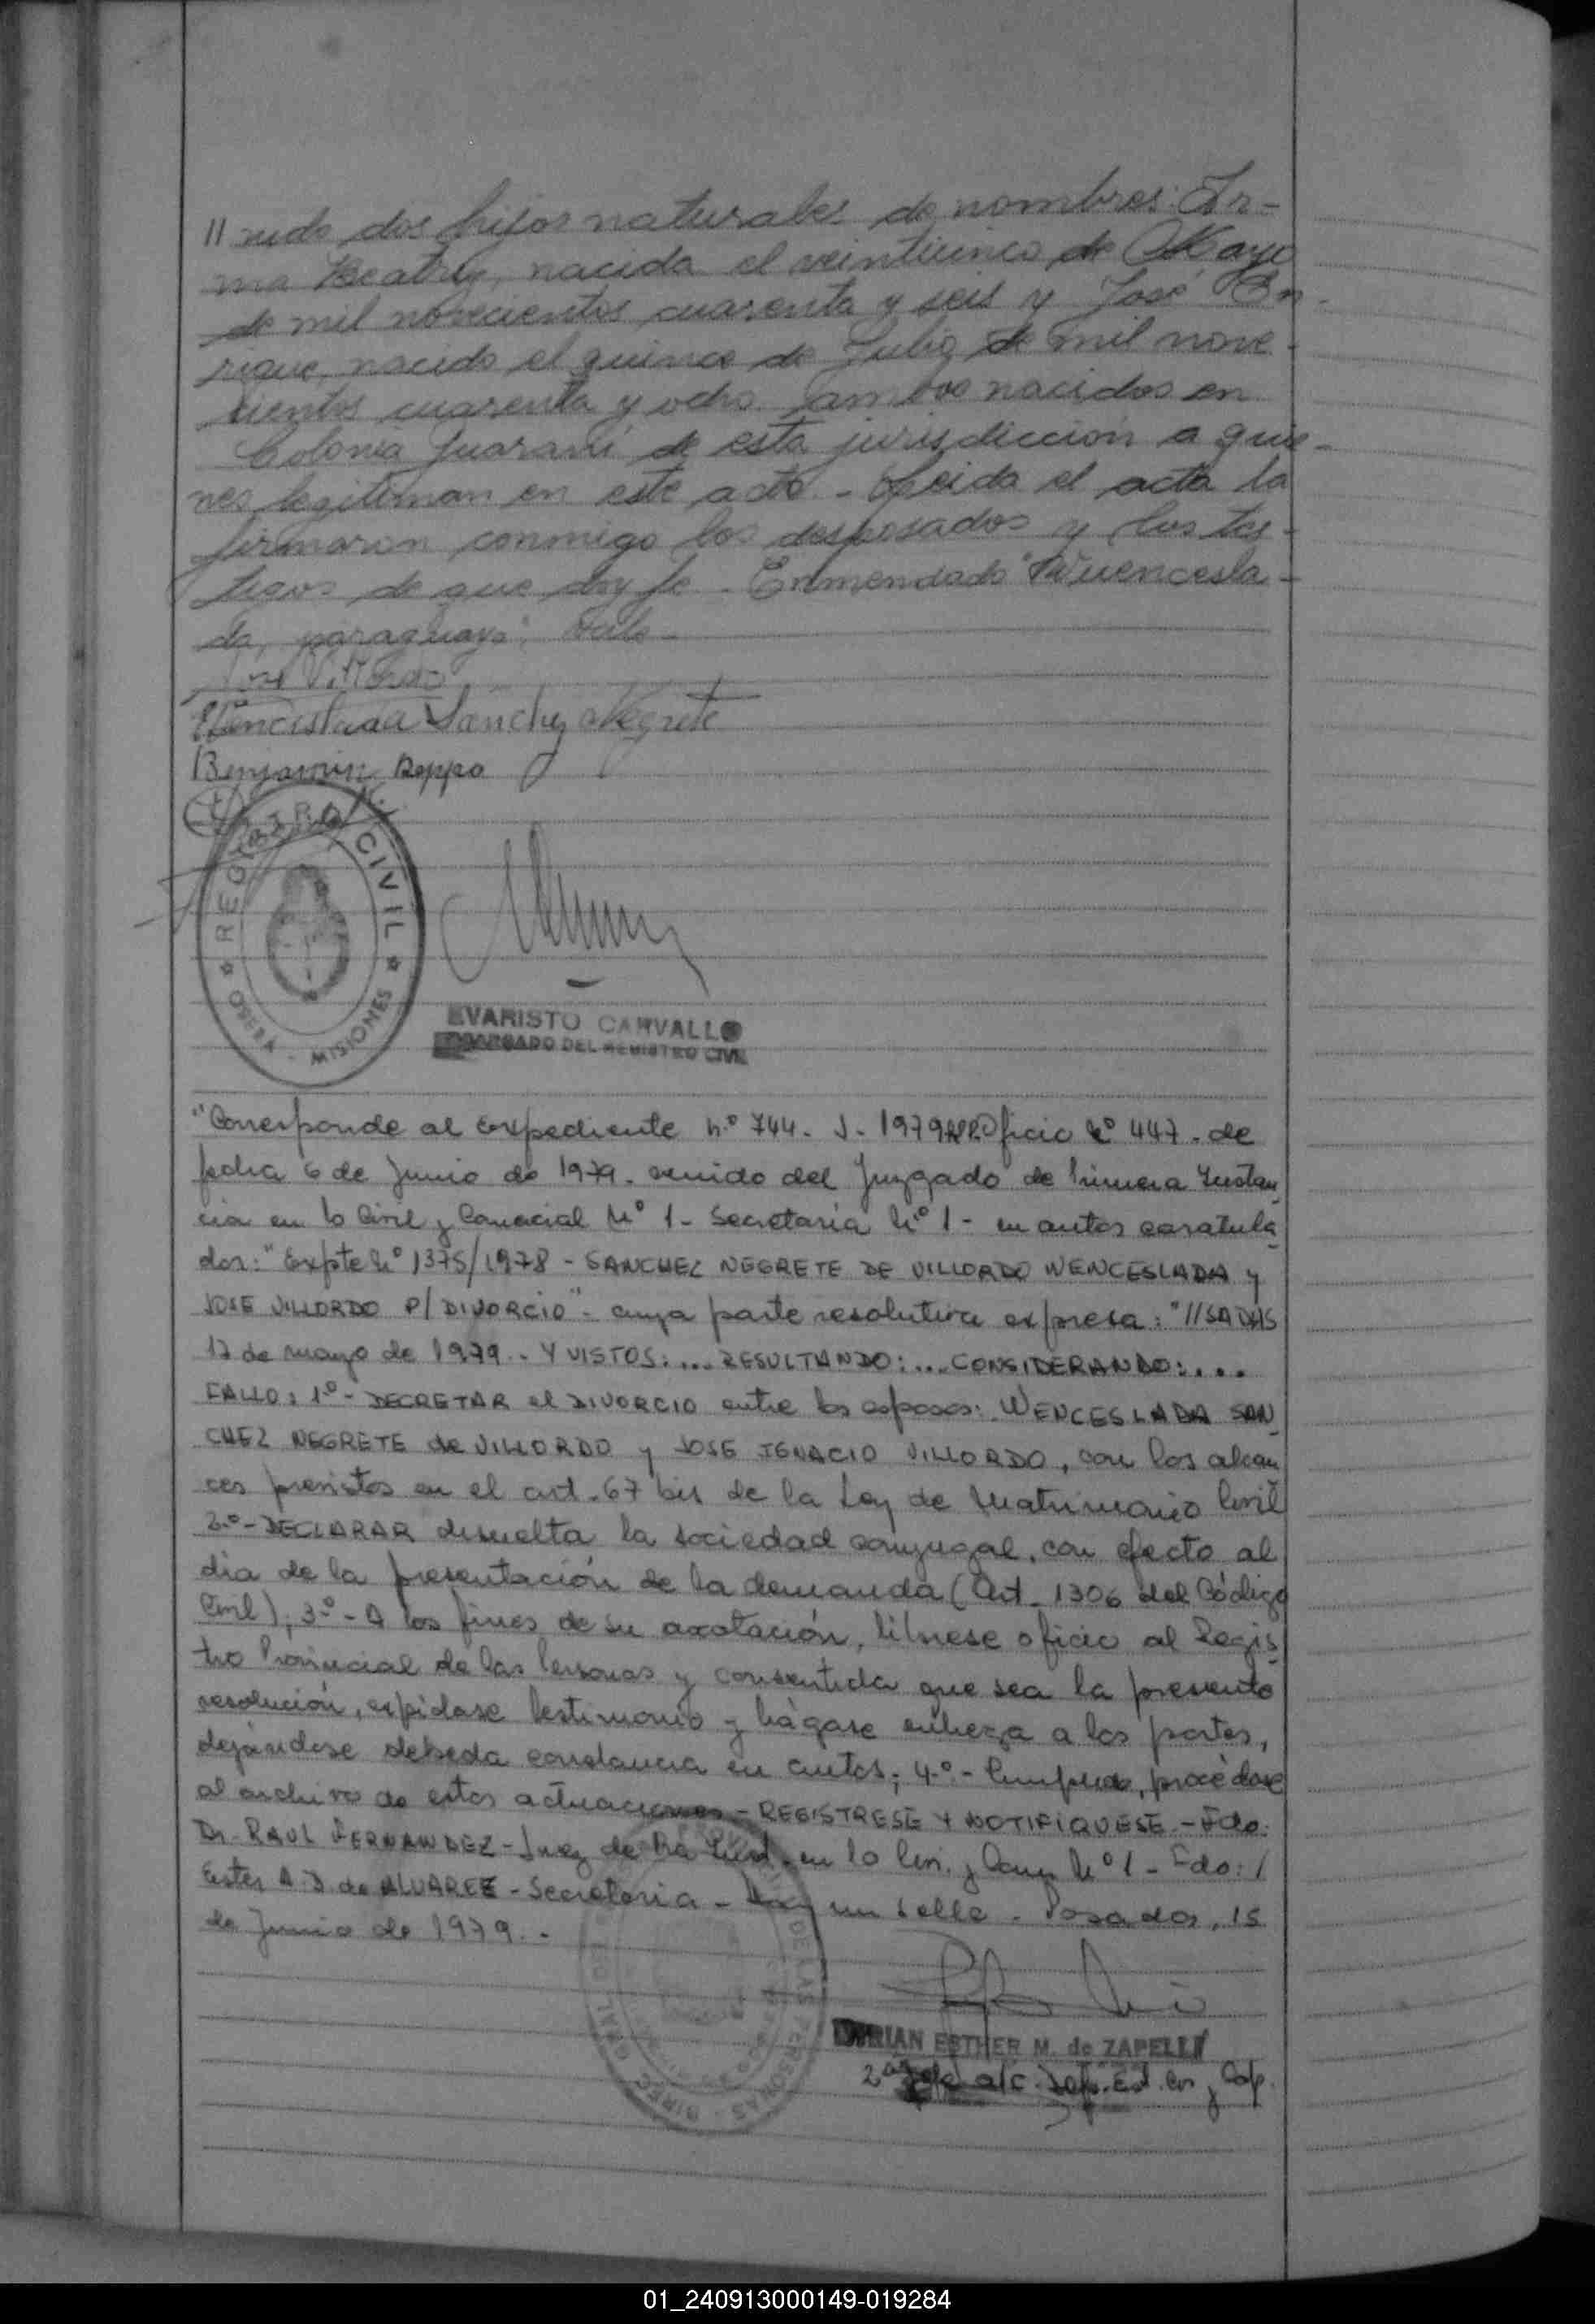 // nido dos hijos naturales de nombres: Ir-
ma Beatriz, nacida el veinticinco de Mayo
de mil novecientos cuarenta y seis y José En-
rique, nacido el quince de Julio de mil nove-
cientos cuarenta y ocho ambos nacidos en
Colonia Guaraní de esta jurisdicción a quie-
nes legitiman en este acto. - Leida el acta la
firmaron conmigo los desposados y los tes-
tigos de que doy fe. - Enmendado "Wuencesla-
da, paraguaya": Vale
José Villordo
Wencislada Sanchez Negrete
Benjamin
REGISTRO CIVIL
MISIONES
EVARISTO CARVALLO
ENCARGADO DEL REGISTRO CIVIL
"Corresponde al Expediente Nº 744. J. 1979 Oficio Nº 447. de
fecha 6 de Junio de 1979. venido del Juzgado de Primera Instan
cia en lo Civil y Comercial Nº 1 - Secretaría Nº 1 - en autos caratula
dos: "Expte Nº 1375/1978 - SANCHEZ NEGRETE DE VILLORDO WENCESLADA y
JOSE VILLORDO P/ DIVORCIO" - cuya parte resolutiva expresa: "//SADAS
17 de mayo de 1979. - Y VISTOS: ... RESULTANDO: ... CONSIDERANDO: ...
FALLO: 1º - DECRETAR el DIVORCIO entre los esposos: WENCESLADA SAN
CHEZ NEGRETE de VILLORDO y JOSE IGNACIO VILLORDO, con los alcan
ces previstos en el art. 67 bis de la Ley de Matrimonio Civil
2º - DECLARAR disuelta la sociedad conyugal, con efecto al
dia de la presentación de la demanda (Art. 1306 del Código
Civil); 3º - A los fines de su anotación, líbrese oficio al Regis
tro Provincial de las Personas y consentida que sea la presente
resolución, expídase testimonio y hágase entrega a las partes,
dejándose debida constancia en autos; 4º - Cumplido, procédase
al archivo de estas actuaciones - REGISTRESE Y NOTIFIQUESE. - Fdo:
Dr. RAUL FERNANDEZ - Juez de 1ra Inst. en lo Civ. y Com Nº 1 - Fdo: /
Ester A. D. de ALVAREZ - Secretaria - Hay un sello. - Posadas, 15
de Junio de 1979. -
DE LAS PERSONAS
MIRIAN ESTHER M. de ZAPELLI
2ª Jefe a/c. Dep. Est. Civ y Cap.
01_240913000149-019284